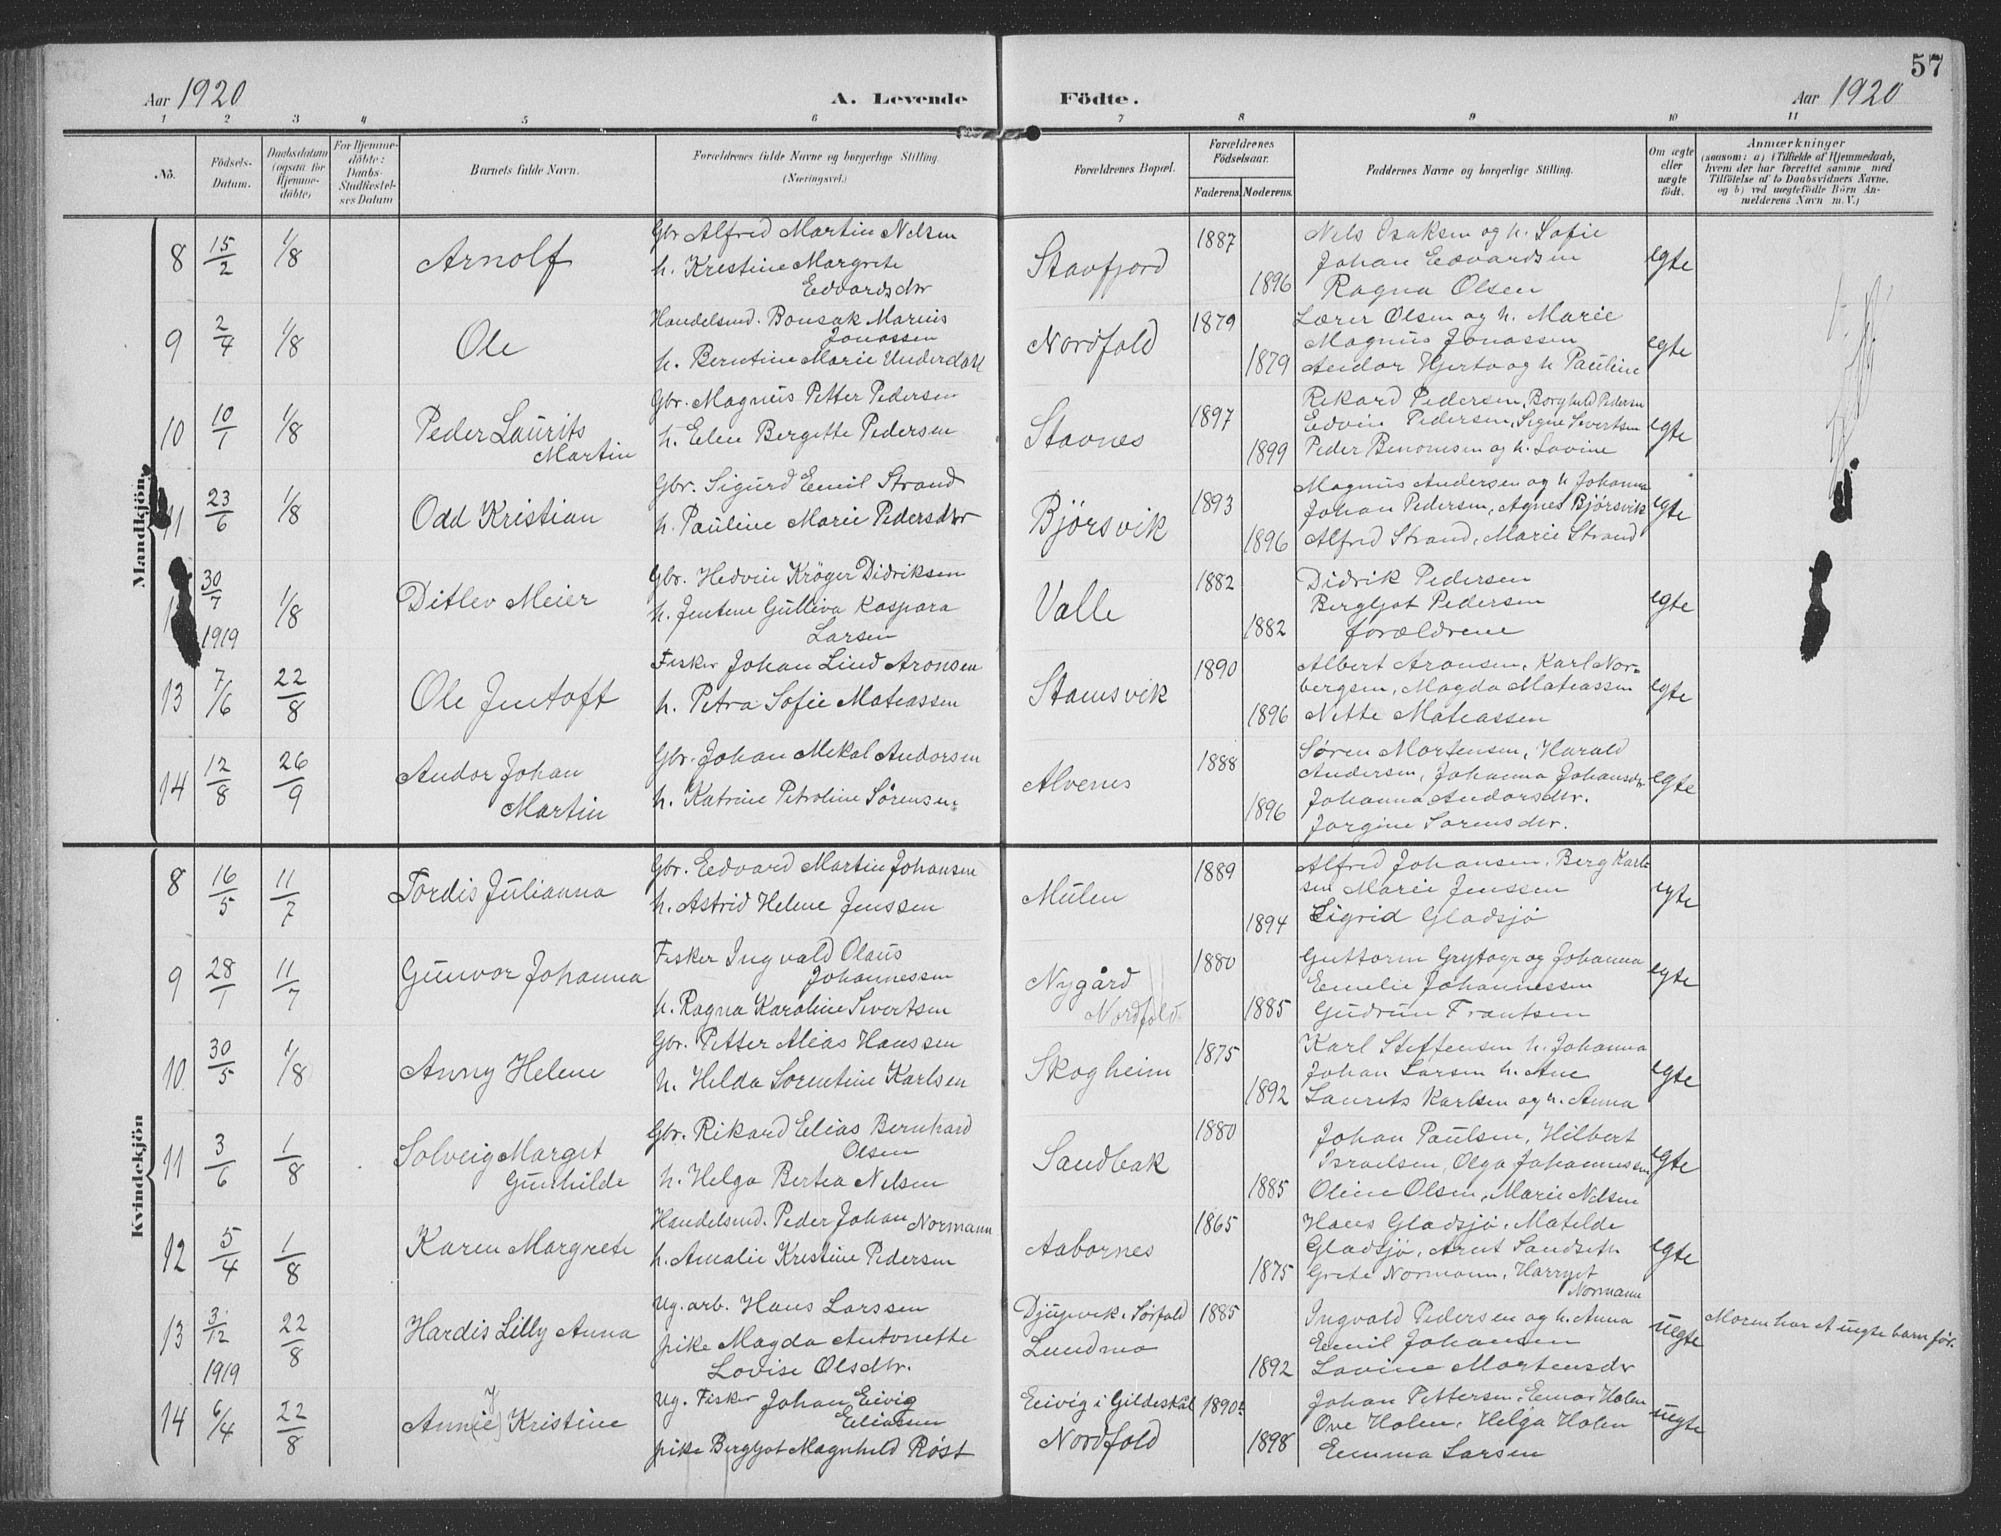 57
Aar 1920
A. Levende
Födte.
Aar 1920
1 2 3 4 5 6 7 8 9 10 11
No.
Födsels-
Datum.
Daabsdatum
(ogsaa for
Hjemme-
döbte)
For Hjemme-
döbte:
Daabs-
Stadfæstel-
ses Datum
Barnets fulde Navn.
Forældrenes fulde Navne og borgerlige Stilling.
(Næringsvei.)
Forældrenes Bopæl.
Forældrenes
Födselsaar.
Faderens. Moderens.
Faddernes Navne og borgerlige Stilling.
Om ægte
eller
uægte
födt.
Anmerkninger
(saasom: a) i Tilfælde af Hjemmedaab,
hvem der har forrettet samme med
Tilföielse af to Daabsvidners Navne,
og b) ved uægtefödte Börn An-
melderens Navn m. V.)
Mandkjön
8 15/2 1/8 Arnolf
Gbr. Alfred Martin Nelsen
h. Kristine Margrete
Edvardsdtr
Stavfjord 1887 1896
Nels Isaksen og h. Sofie
Johan Edvardsen
Ragna Olsen
egte
9 2/4 1/8 Ole
Handelsmd. Bonsak Marius
Jonassen
h. Berntine Marie Underdahl
Nordfold 1879 1879
Lærer Olsen og h. Marie
Magnus Jonassen
Andor Hjertø og h Pauline
egte
10 10/1 1/8 Peder Laurits
Martin
Gbr. Magnus Petter Pedersen
h. Elen Bergette Pedersen
Stavnes 1897 1899
Rikard Pedersen, Borghild Pedersen
Edvin Pedersen, Signe Sivertsen
Peder Benomsen og h. Lovine
egte
11 23/6 1/8 Odd Kristian
Gbr. Sigurd Emil Strand
h. Pauline Marie Pedersdtr
Bjørsvik 1893 1896
Magnus Andersen og h Johanna
Johan Pedersen, Agnes Bjørsvik
Alfred Strand, Marie Strand
egte
30/7 1919 1/8 Ditlev Meier
Gbr. Hedvin Krøger Didriksen
h. Jentine Gulliva Kaspara
Larsen
Valle 1882 1882
Didrik Pedersen
Bergljot Pedersen
forældrene
egte
13 7/6 22/8 Ole Jentoft
Fisker Johan Lind Aronsen
h. Petra Sofie Mateassen
Stamsvik 1890 1896
Albert Aronsen, Karl Nor-
bergsen, Magda Mateassen
Nette Mateassen
egte
14 12/8 26/9 Andor Johan
Martin
Gbr. Johan Mekal Andorsen
h. Katrine Petroline Sørensen
Alvenes 1888 1896
Søren Mortensen, Harald
Andersen, Johanna Johansdtr
Johanna Andorsdtr.
Jorgine Sorensdtr.
egte
Kvindekjön
8 16/5 11/7 Tordis Julianna
Gbr. Edvard Martin Johansen
h. Astrid Helene Jenssen
Mulen 1889 1894
Alfred Johansen, Berg Karl-
sen Marie Jenssen
Sigrid Gladsjø
egte
9 28/1 11/7 Gunvor Johanna
Fisker Ingvald Olaus
Johannessen
h. Ragna Karoline Sivertsen
Nygård
Nordfold 1880 1885
Guttorm Grytøyr og Johanna
Emelie Johannessen
Gudrun Frantsen
egte
10 30/5 1/8 Anny Helene
Gbr. Petter Alias Hanssen
h. Helda Sorentine Karlsen
Skogheim 1875 1892
Karl Steffensen h. Johanna
Johan Larsen h. Ane
Laurets Karlsen og h. Anna
egte
11 3/6 1/8 Solveig Margit
Gunhilde
Gbr. Rikard Elias Bernhard
Olsen
h. Helga Bertea Nelsen
Sandbak 1880 1885
Johan Paulsen, Hilbert
Israelsen, Olga Johannessen
Oline Olsen, Marie Nelsen
egte
12 5/4 1/8 Karen Margrete
Handelsmd. Peder Johan Normann
h. Amalie Kristine Pedersen
Aabornes 1865 1875
Hans Gladsjø, Matelde
Gladsjø, Arnt Sandseth
Grete Normann, Harryet
Normann
egte
13 3/12 1919 22/8 Hardis Lilly Anna
Ug. arb. Hans Larssen
pike Magda Antonette
Lovise Olsdtr.
Djupvik i Sørfold
Lundmo 1885 1892
Ingvald Pedersen og h. Anna
Emil Johansen
Lovine Mortensdtr
uegte
Moren har et uegte barn før.
14 6/4 22/8 Ann(ie) Kristine
y
Ug. Fisker Johan Eivig
Eliassen
pike Bergljot Magnhild Røst
Eivig i Gildeskål
Nordfold 1890 1898
Johan Pettersen, Einar Holen
Ove Holen, Helga Holen
Emma Larsen
uegte